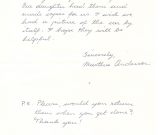 Our daughter had them and
made copies for us. I wish we
had a picture of the one by
itself. I hope they will be
helpful.
Sincerely,
Martha Anderson
P.S. Please would you return
them when you get done?
Thank you!